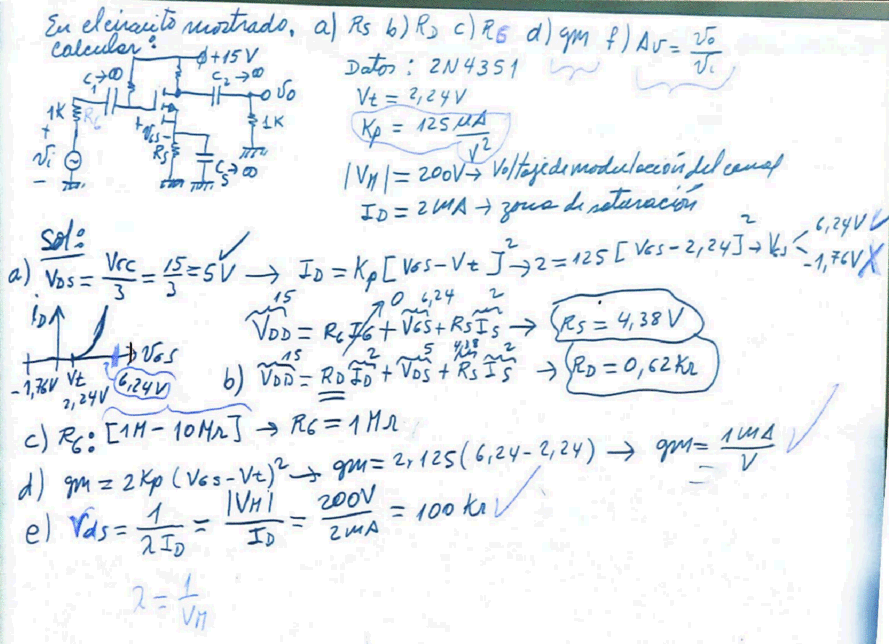 En el circuito mostrado, a) RS b) RD c) RG d) gm f) Av = vo/vi
calcular:
ϕ+15V
C1→∞
C2→∞
vo
1K
RG
1K
+
VGS
-
RS
CS→∞
+
vi
-
Datos: 2N4351
Vt = 2,24V
Kp = 125 μA/V²
|VM| = 200V → Voltaje de modulación del canal
ID = 2mA → zona de saturación
Sol:
a) VDS = VCC/3 = 15/3 = 5V ✓ → ID = Kp[VGS-Vt]² → 2 = 125[VGS-2,24]² → VGS < 6,24V ✓
-1,76V X
15 0 6,24 2
VDD = RG IG + VGS + RS IS → RS = 4,38 V
iD
VGS
-1,76V Vt 6,24V
2,24V
15 2 5 4,38 2
b) VDD = RD ID + VDS + RS IS → RD = 0,62KΩ
c) RG: [1M - 10MΩ] → RG = 1MΩ
d) gm = 2Kp(VGS-Vt)² → gm = 2,125(6,24-2,24) → gm = 1mA/V ✓
e) rds = 1/λID = |VM|/ID = 200V/2mA = 100KΩ ✓
λ = 1/VM